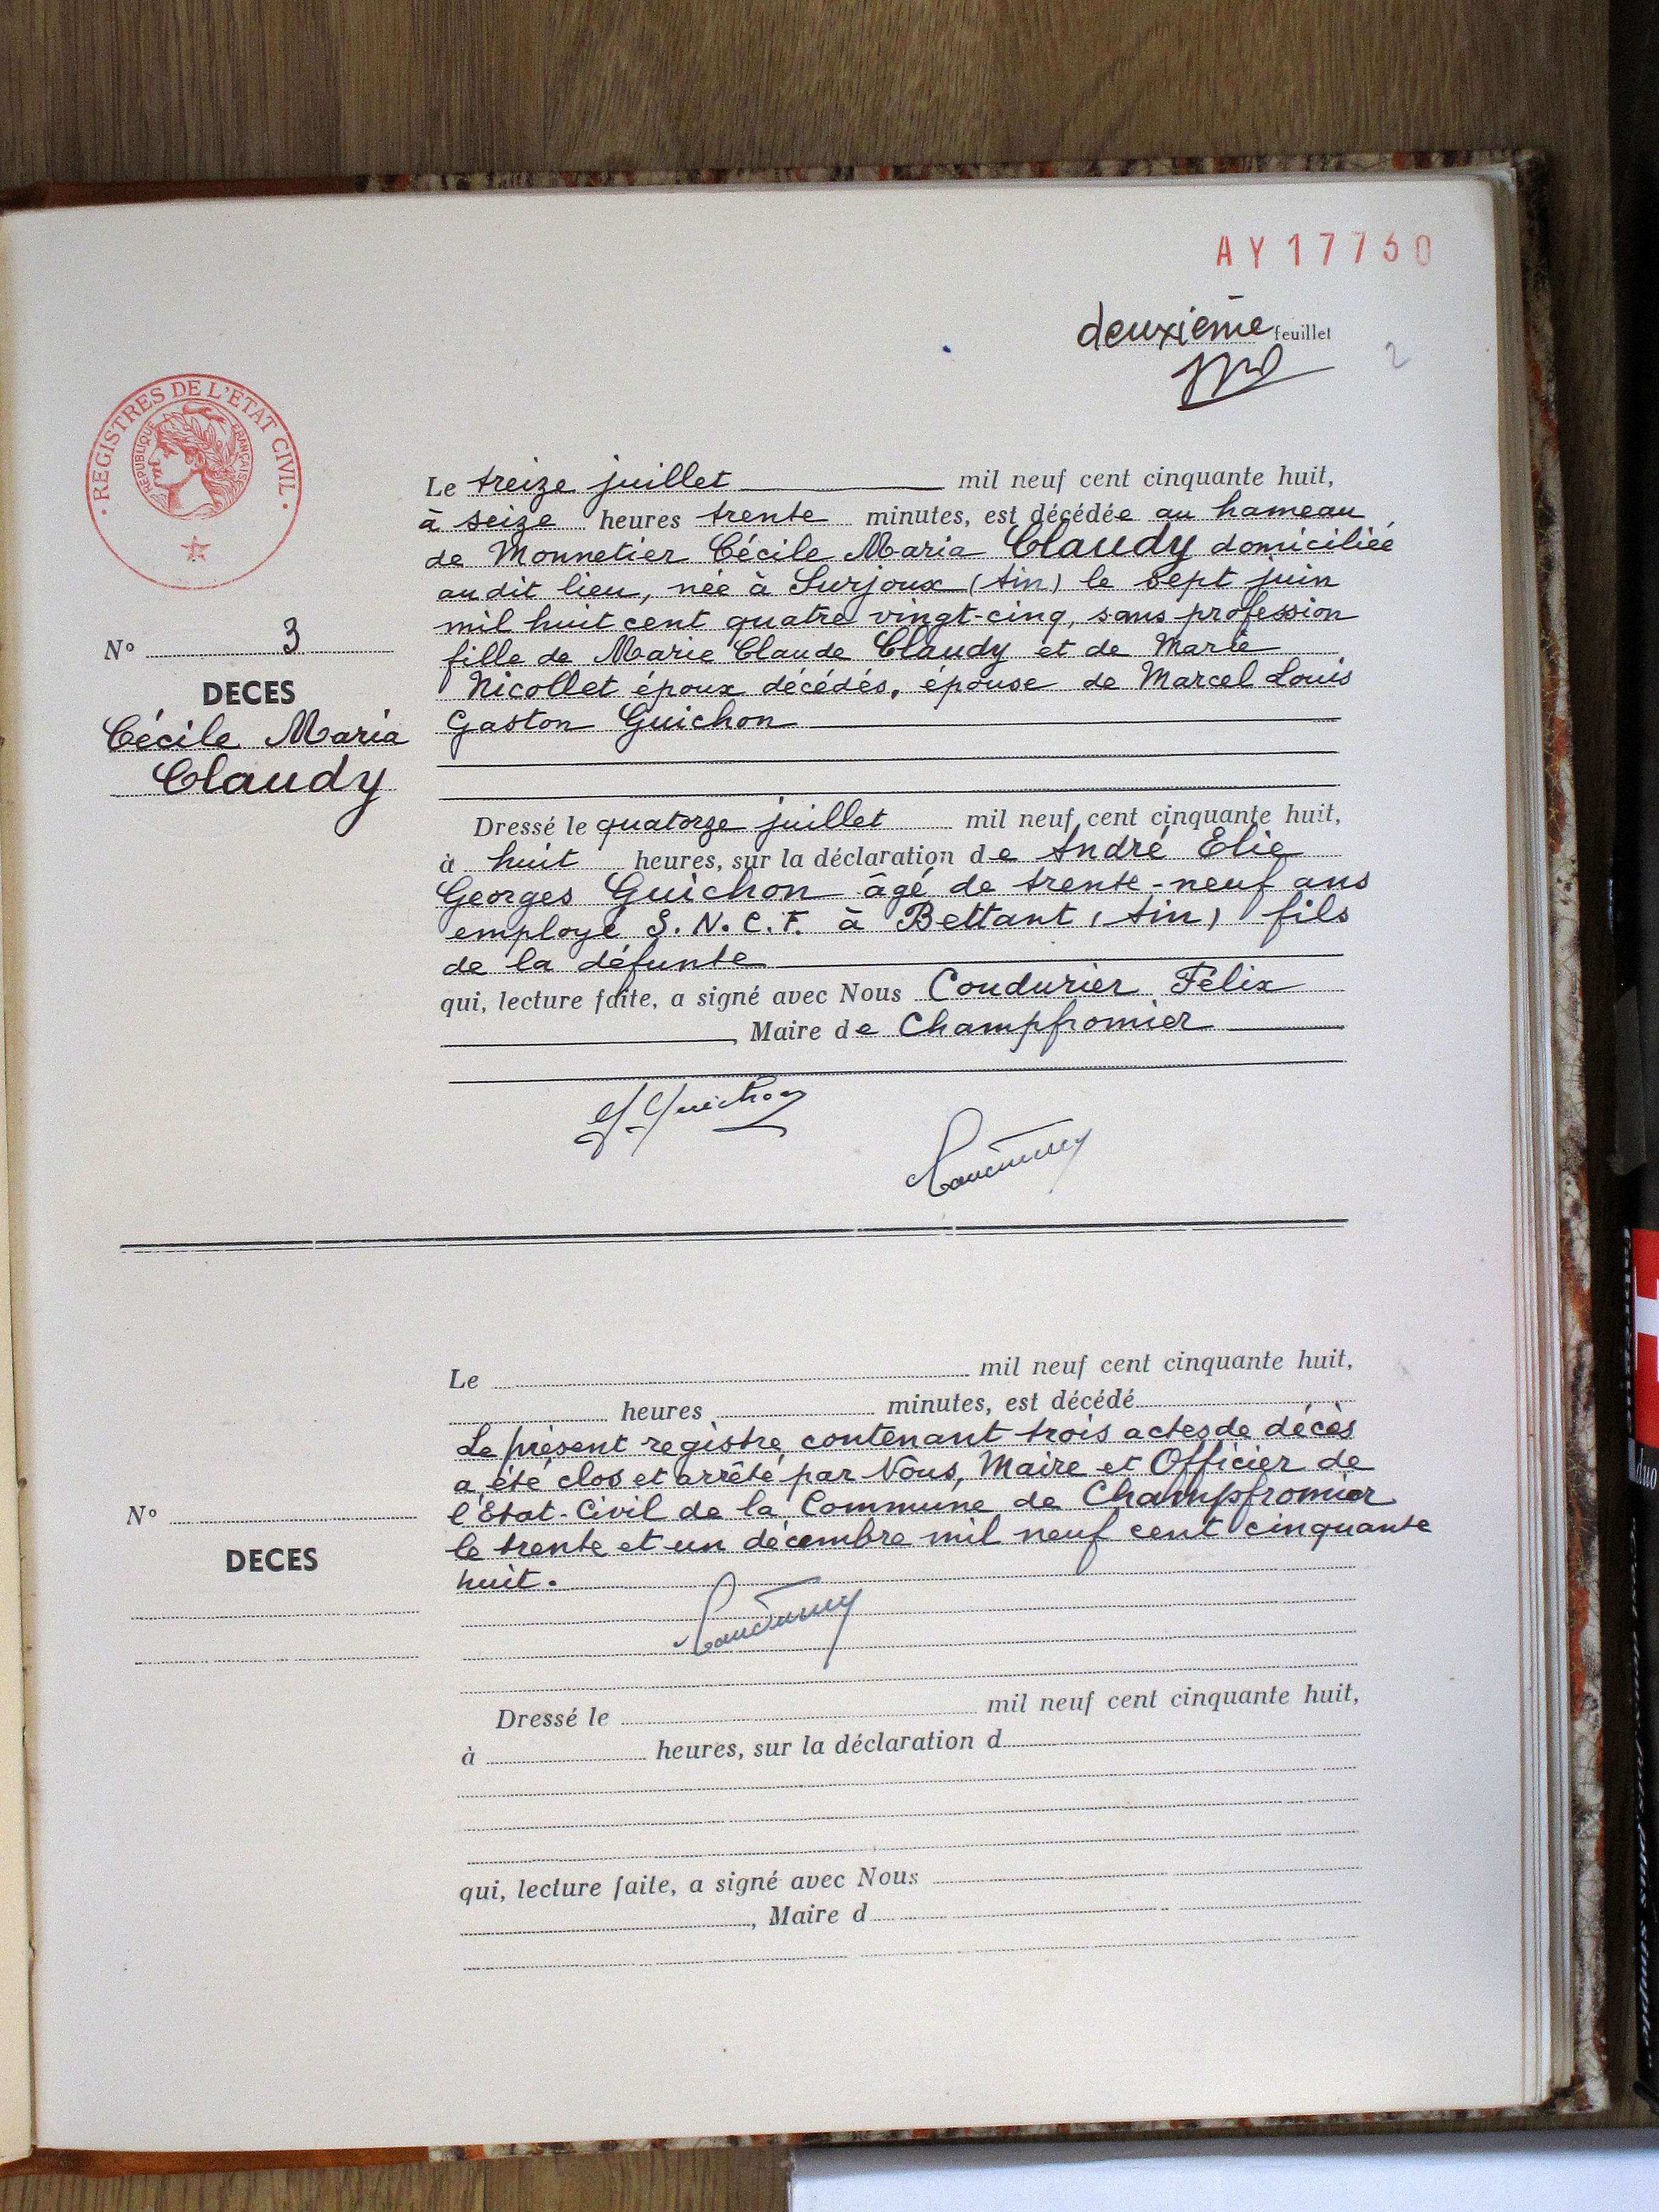 AY17730
deuxième feuillet
2
REGISTRES DE L'ÉTAT CIVIL
REPUBLIQUE FRANÇAISE
Le treize juillet mil neuf cent cinquante huit,
à seize heures trente minutes, est décédée au hameau
de Monnetier Cécile Maria Claudy domiciliée
au dit lieu, née à Surjoux (Ain) le sept juin
mil huit cent quatre vingt-cinq, sans profession
fille de Marie Claude Claudy et de Marie
Nicollet époux décédés, épouse de Marcel Louis
Gaston Guichon
N° 3
DECES
Cécile Maria
Claudy
Dressé le quatorze juillet mil neuf cent cinquante huit,
à huit heures, sur la déclaration de André Elie
Georges Guichon âgé de trente-neuf ans
employé S.N.C.F. à Bettant (Ain) fils
de la défunte
qui, lecture faite, a signé avec Nous Coudurier Félix
, Maire de Champfromier
Guichon
Le mil neuf cent cinquante huit,
heures minutes, est décédé
Le présent registre contenant trois actes de décès
a été clos et arrêté par Nous, Maire et Officier de
l'Etat-Civil de la Commune de Champfromier
le trente et un décembre mil neuf cent cinquante
huit.
N°
DECES
Dressé le mil neuf cent cinquante huit,
à heures, sur la déclaration d
qui, lecture faite, a signé avec Nous
, Maire d